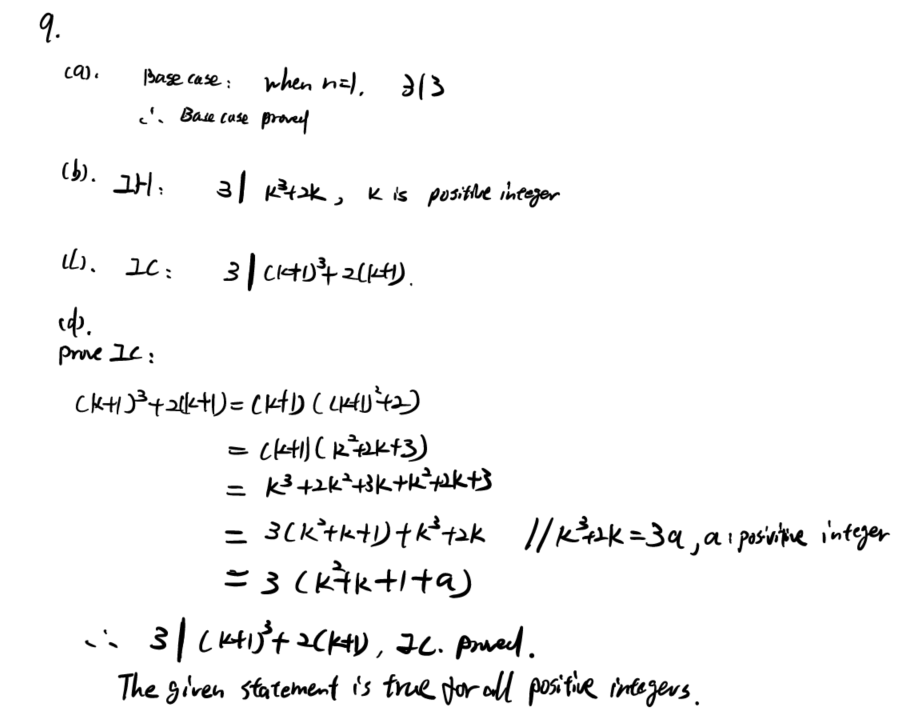 9.
(a). Base case: when n=1. 3|3
∴ Base case proved
(b). IH: 3 | k³+2k, k is positive integer
(c). IC: 3 | (k+1)³+2(k+1).
(d).
prove IC:
(k+1)³+2(k+1)=(k+1)((k+1)²+2)
= (k+1)(k²+2k+3)
= k³+2k²+3k+k²+2k+3
= 3(k²+k+1)+k³+2k //k³+2k=3a, a: positive integer
= 3 (k²+k+1+a)
∴ 3 | (k+1)³+2(k+1), IC. proved.
The given statement is true for all positive integers.